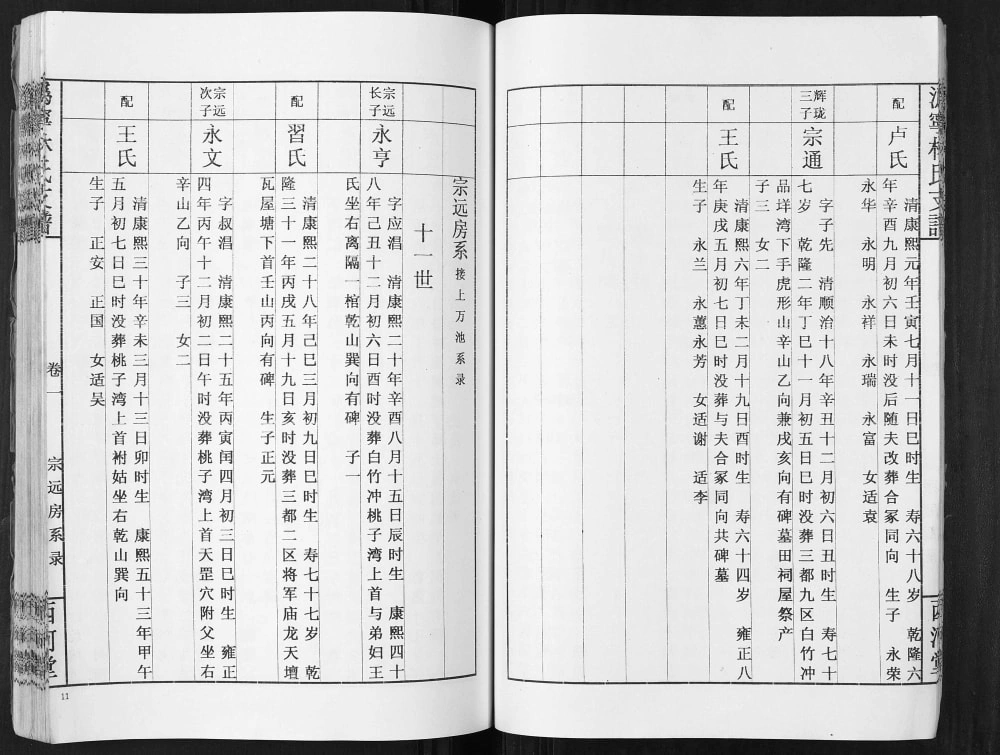 沩寧林氏支譜
西河堂
配
卢氏
清康熙元年壬寅七月十一日巳时生 寿六十八岁 乾隆六
年辛酉九月初六日未时没后随夫改葬合冢同向 生子 永荣
永华 永明 永祥 永瑞 永富 女适袁
辉珑
三子
宗通
字子先 清顺治十八年辛丑十二月初六日丑时生 寿七十
七岁 乾隆二年丁巳十一月初五日巳时没葬三都九区白竹冲
品垟湾下手虎形山辛山乙向兼戌亥向有碑墓田祠屋祭产
子三 女二
配
王氏
清康熙六年丁未二月十九日酉时生 寿六十四岁 雍正八
年庚戌五月初七日巳时没葬与夫合冢同向共碑墓
生子 永兰 永蕙永芳 女适谢 适李
宗远房系 接上万池系录
十一世
宗远
长子
永亨
字应淐 清康熙二十年辛酉八月十五日辰时生 康熙四十
八年己丑十二月初六日酉时没葬白竹冲桃子湾上首与弟妇王
氏坐右离隔一棺乾山巽向有碑 子一
配
習氏
清康熙二十八年己巳三月初九日巳时生 寿七十七岁 乾
隆三十一年丙戌五月十九日亥时没葬三都二区将军庙龙天壇
瓦屋塘下首壬山丙向有碑 生子正元
宗远
次子
永文
字叔淐 清康熙二十五年丙寅闰四月初三日巳时生 雍正
四年丙午十二月初二日午时没葬桃子湾上首天罡穴附父坐右
辛山乙向 子三 女二
配
王氏
清康熙三十年辛未三月十三日卯时生 康熙五十三年甲午
五月初七日巳时没葬桃子湾上首祔姑坐右乾山巽向
生子 正安 正国 女适吴
卷一
宗远房系录
西河堂
11